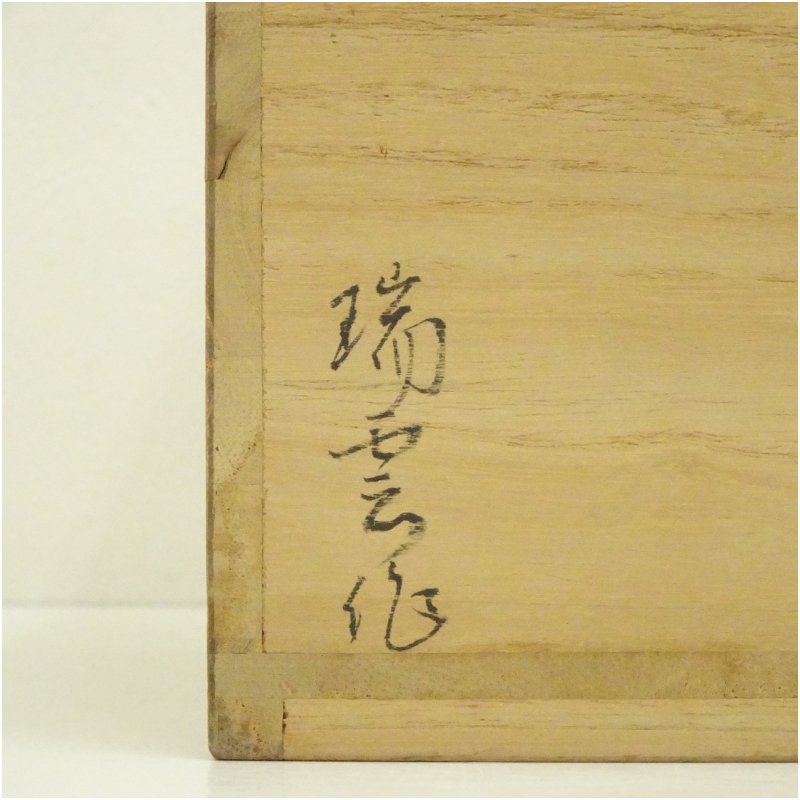 瑞雲作